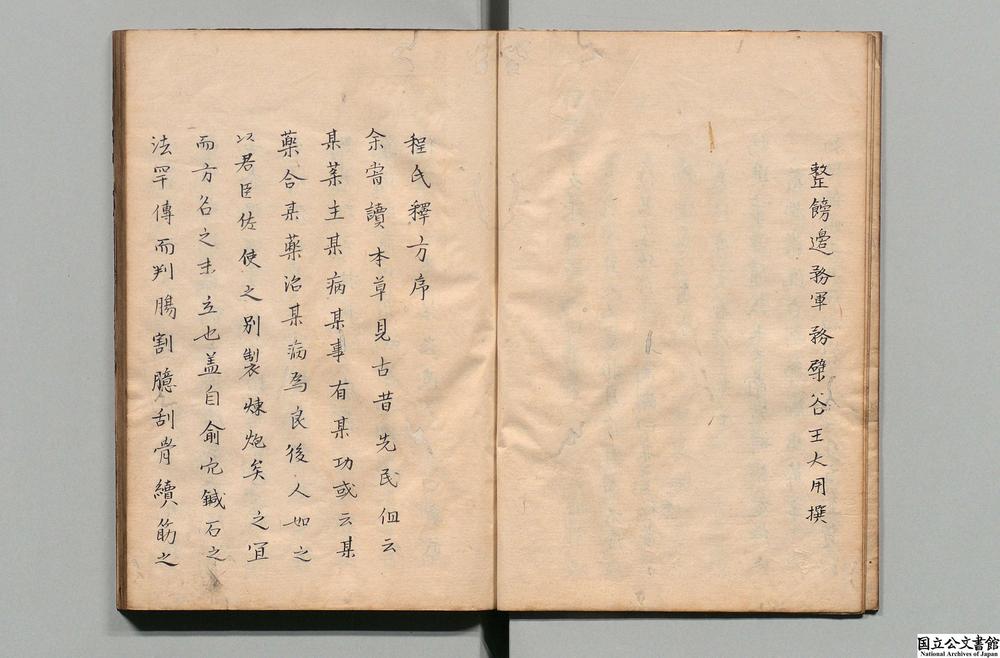 整飭邊務軍務檗谷王大用撰
程氏釋方序
余嘗讀本草見古昔先民但云
某藥主某病某事有某功或云某
藥合某藥治某病為良後人如之
以君臣佐使之別製煉炮矣之宜
而方名之未立也盖自俞穴鍼石之
法罕傳而判腸割臆刮骨續筋之
国立公文書館
National Archives of Japan